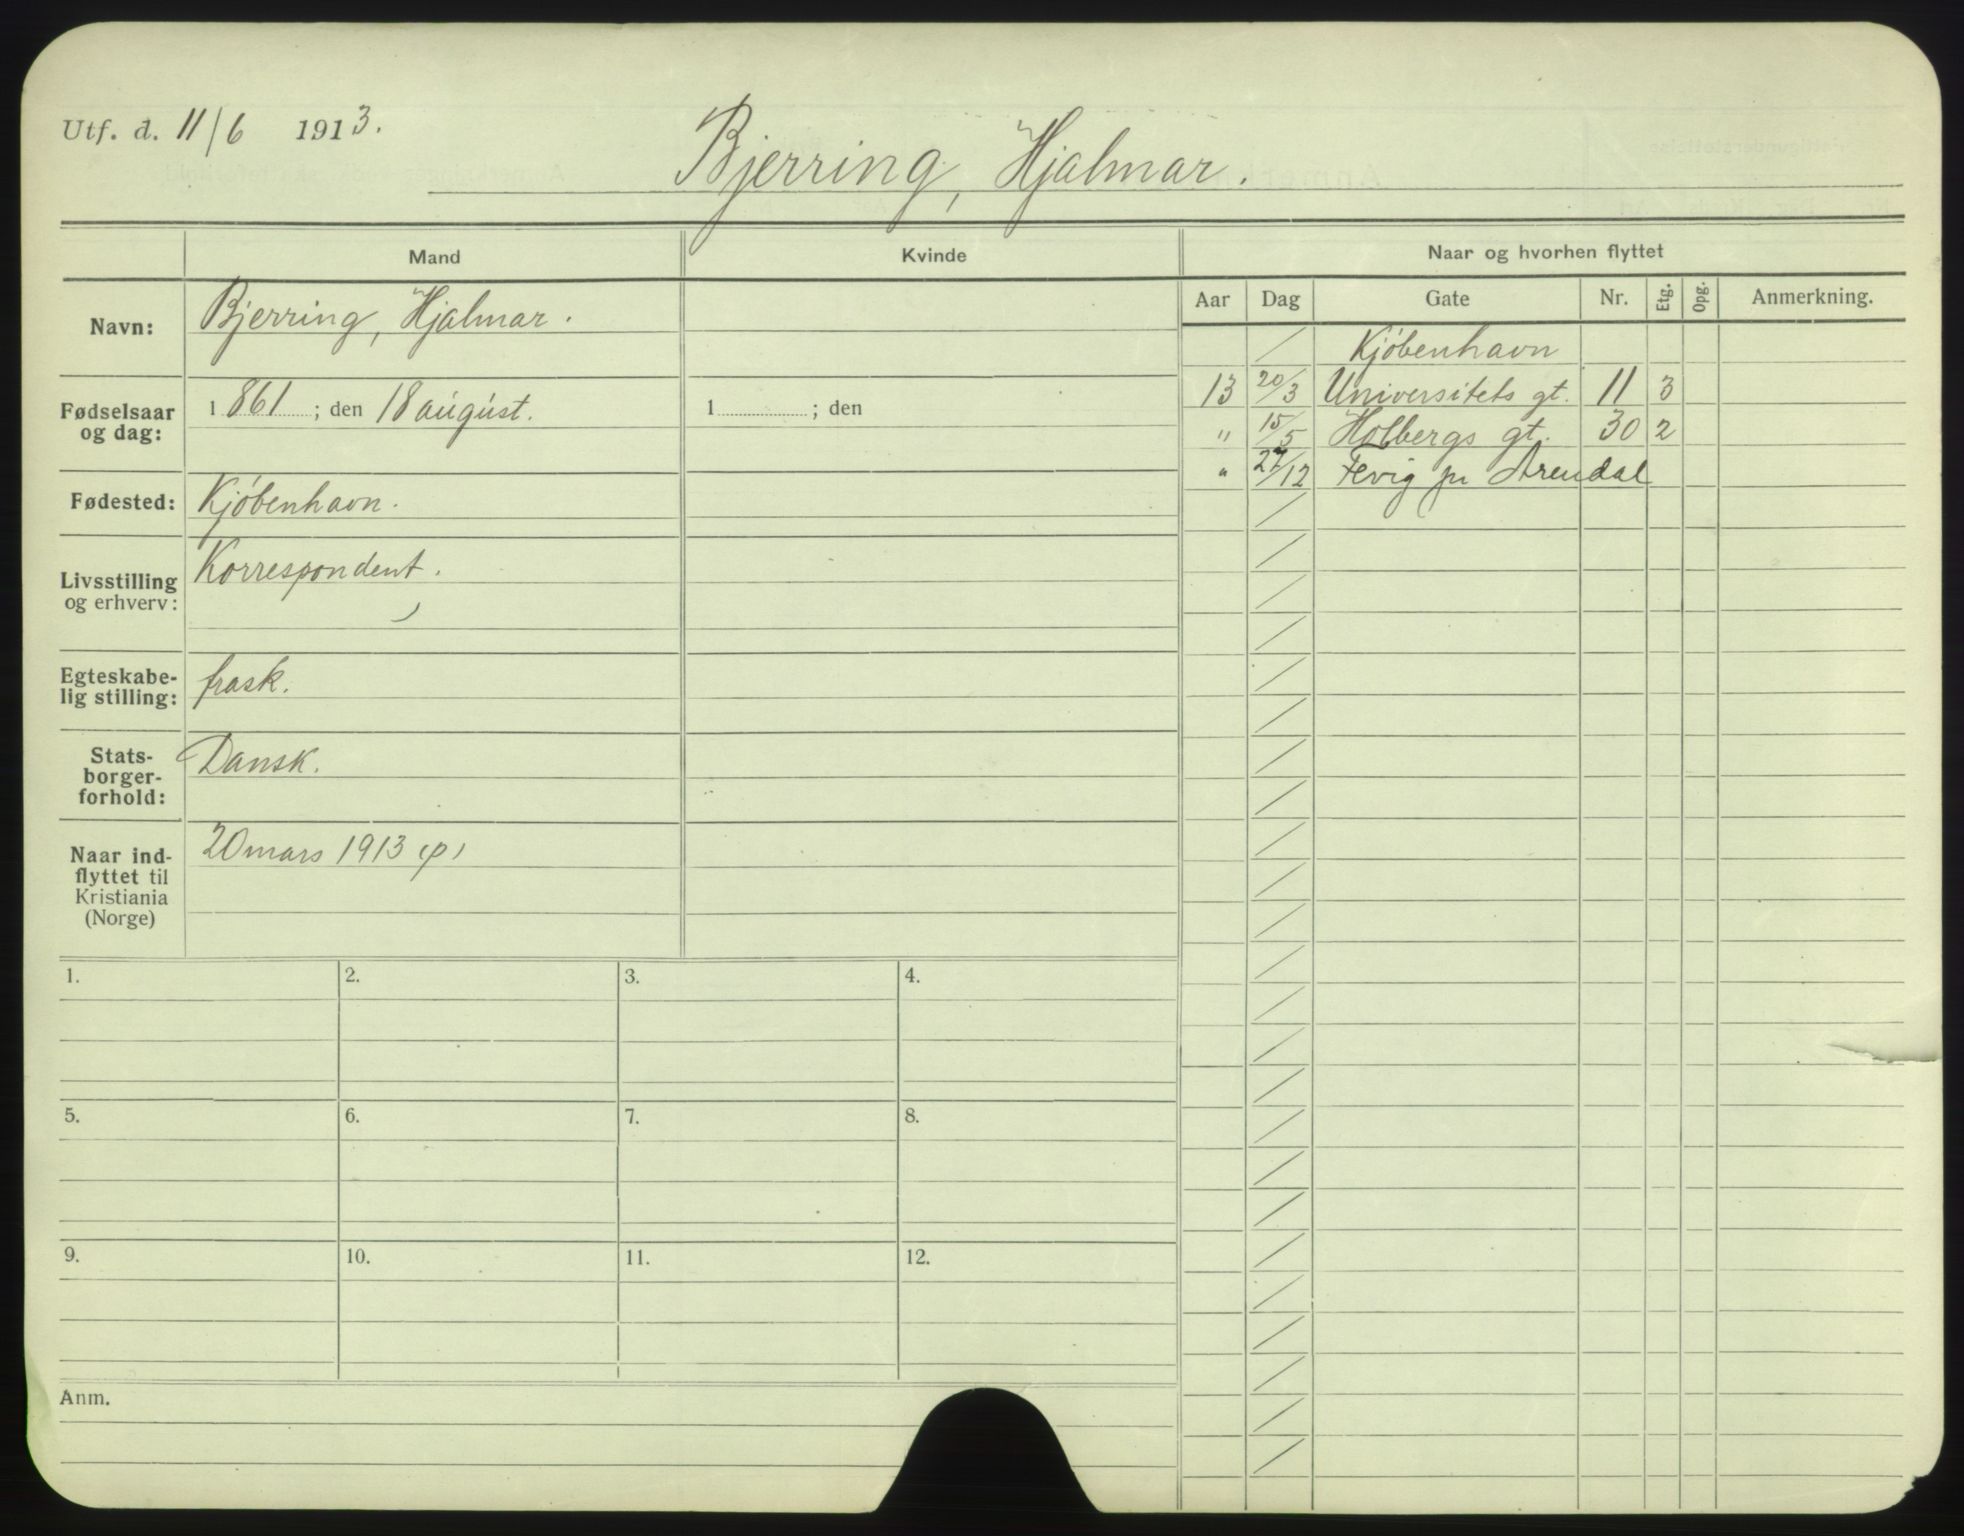 Utf. d. 11/6 1913.
Bjerring, Hjalmar.
Mand
Kvinde
Naar og hvorhen flyttet
Navn:
Bjerring, Hjalmar.
Fødselsaar og dag:
1861; den 18 august.
1 ; den
Fødested:
Kjöbenhavn.
Livsstilling og erhverv:
Korrespondent.
Egteskabe-
lig stilling:
frask.
Stats-
borger-
forhold:
Dansk.
Naar ind-
flyttet til
Kristiania
(Norge)
20 mars 1913 (p)
Aar Dag Gate Nr. Etg. Opg. Anmerkning.
/ Kjöbenhavn
13 20/3 Universitets gt. 11 3
" 15/5 Holbergs gt. 30 2
" 27/12 Fevig pr Arendal
1. 2. 3. 4.
5. 6. 7. 8.
9. 10. 11. 12.
Anm.